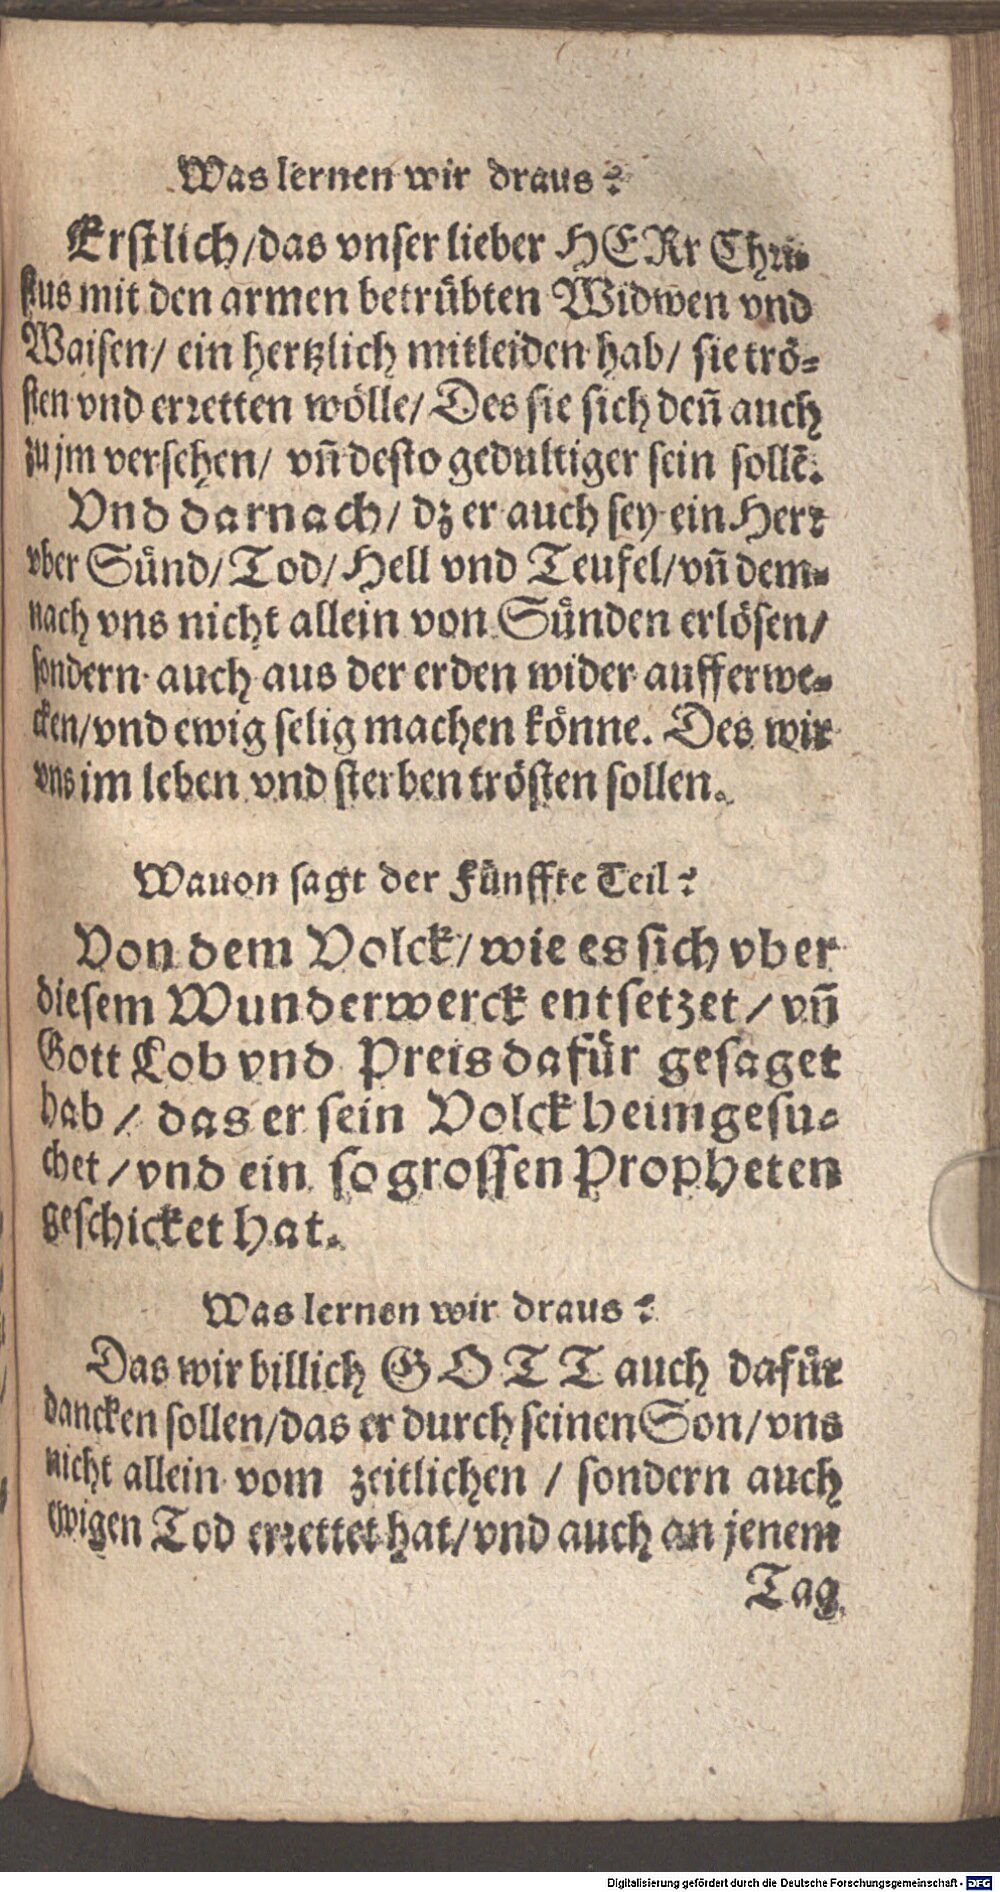 Was lernen wir draus?
Erstlich/das vnser lieber HERr Chri-
stus mit den armen betrübten Widwen vnd
Waisen/ ein hertzlich mitleiden hab/ sie trö-
sten vnd erretten wölle/ Des sie sich deñ auch
zu jm versehen/ vñ desto gedultiger sein sollẽ.
Vnd darnach/ dz er auch sey ein Herr
vber Sünd/ Tod/ Hell vnd Teufel/vñ dem-
nach vns nicht allein von Sünden erlösen/
sondern auch aus der erden wider aufferwe-
cken/vnd ewig selig machen könne. Des wir
vns im leben vnd sterben trösten sollen.
Wauon sagt der Fünffte Teil?
Von dem Volck/wie es sich vber
diesem Wunderwerck entsetzet/vñ
Gott Lob vnd Preis dafür gesaget
hab/ das er sein Volck heimgesu-
chet/vnd ein so grossen Propheten
geschicket hat.
Was lernen wir draus?
Das wir billich GOTT auch dafür
dancken sollen/das er durch seinen Son/vns
nicht allein vom zeitlichen / sondern auch
ewigen Tod errettet hat/vnd auch an jenem
Tag
Digitalisierung gefördert durch die Deutsche Forschungsgemeinschaft - DFG